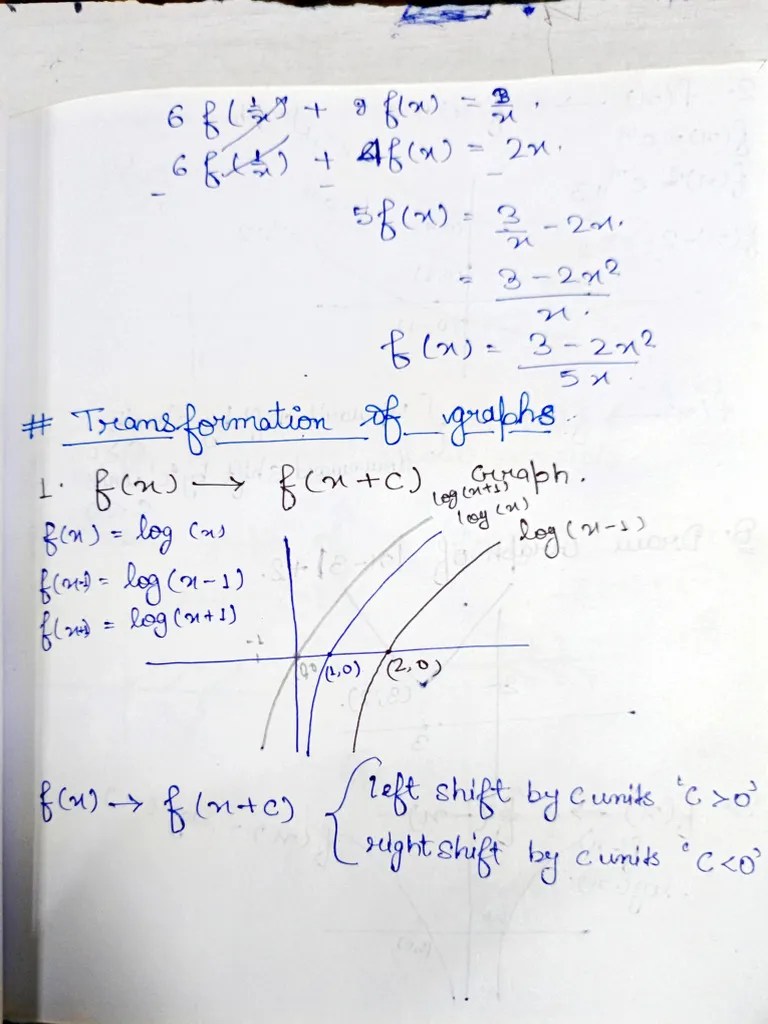 6 f(1/x) + 9 f(x) = 3/x.
6 f(1/x) + 4f(x) = 2x.
5f(x) = 3/x - 2x.
= 3 - 2x² / x.
f(x) = 3 - 2x² / 5x.
# Transformation of graphs.
1. f(x) → f(x+c) Graph.
log(x+1)
log(x)
log(x-1)
f(x) = log(x)
f(x-1) = log(x-1)
f(x+1) = log(x+1)
-1
(1,0)
(2,0)
f(x) → f(x+c) { left shift by c units 'c>0'
right shift by c units 'c<0'